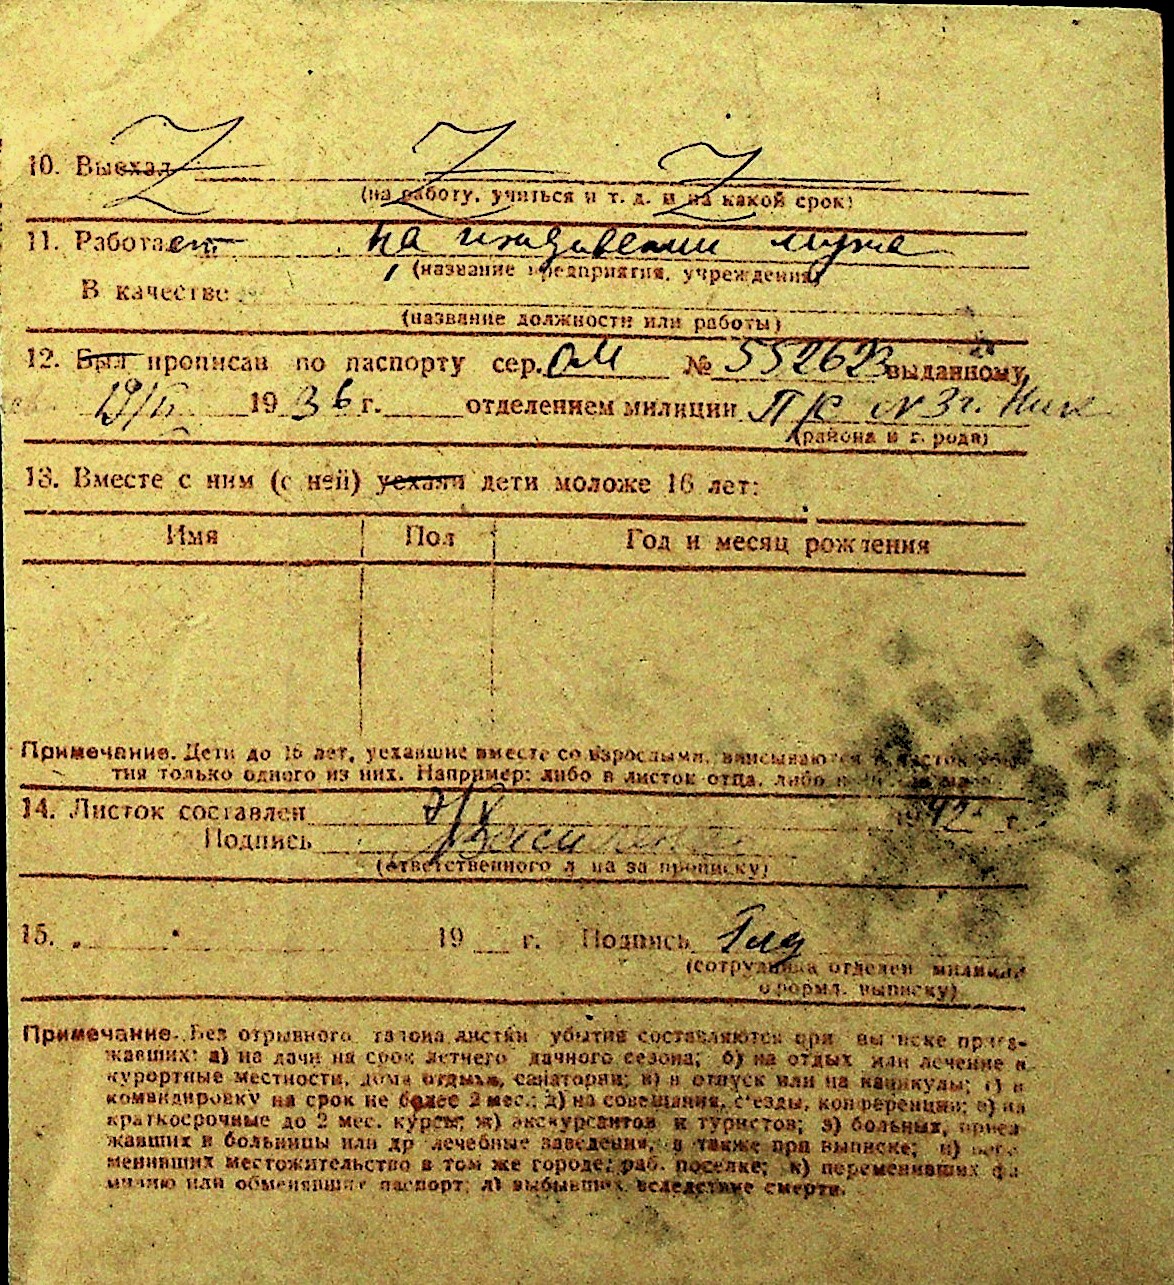 10. Выехал Z Z Z
(на работу, учиться и т. д. и на какой срок)
11. Работает на иждивении мужа
(название предприятия, учреждения)
В качестве
(название должности или работы)
12. Был прописан по паспорту сер. ОМ № 552623 выданному
19 1936 г. отделением милиции №3 г.
(района и города)
13. Вместе с ним (с ней) уехали дети моложе 16 лет:
Имя Пол Год и месяц рождения
Примечание. Дети до 16 лет, уехавшие вместе со взрослыми, вписываются в листок
тия только одного из них. Например: либо в листок отца, либо
14. Листок составлен 1942 г.
Подпись
(ответственного за прописку)
15. 19 г. Подпись
(сотрудника отделен милиции
оформл. выписку)
Примечание. Без отрывного талона листки убытия составляются при выписке приез-
жавших: а) на дачи на срок летнего дачного сезона; б) на отдых или лечение в
курортные местности, дома отдыха, санатории; в) в отпуск или на каникулы; г) в
командировку на срок не более 2 мес.; д) на совещания, с'езды, конференции; е) на
краткосрочные до 2 мес. курсы; ж) экскурсантов и туристов; з) больных, приез
жавших в больницы или др лечебные заведения, а также при выписке; и) пере
менивших местожительство в том же городе, раб. поселке; к) переменивших фа
милию или обменявших паспорт; л) выбывших вследствие смерти.